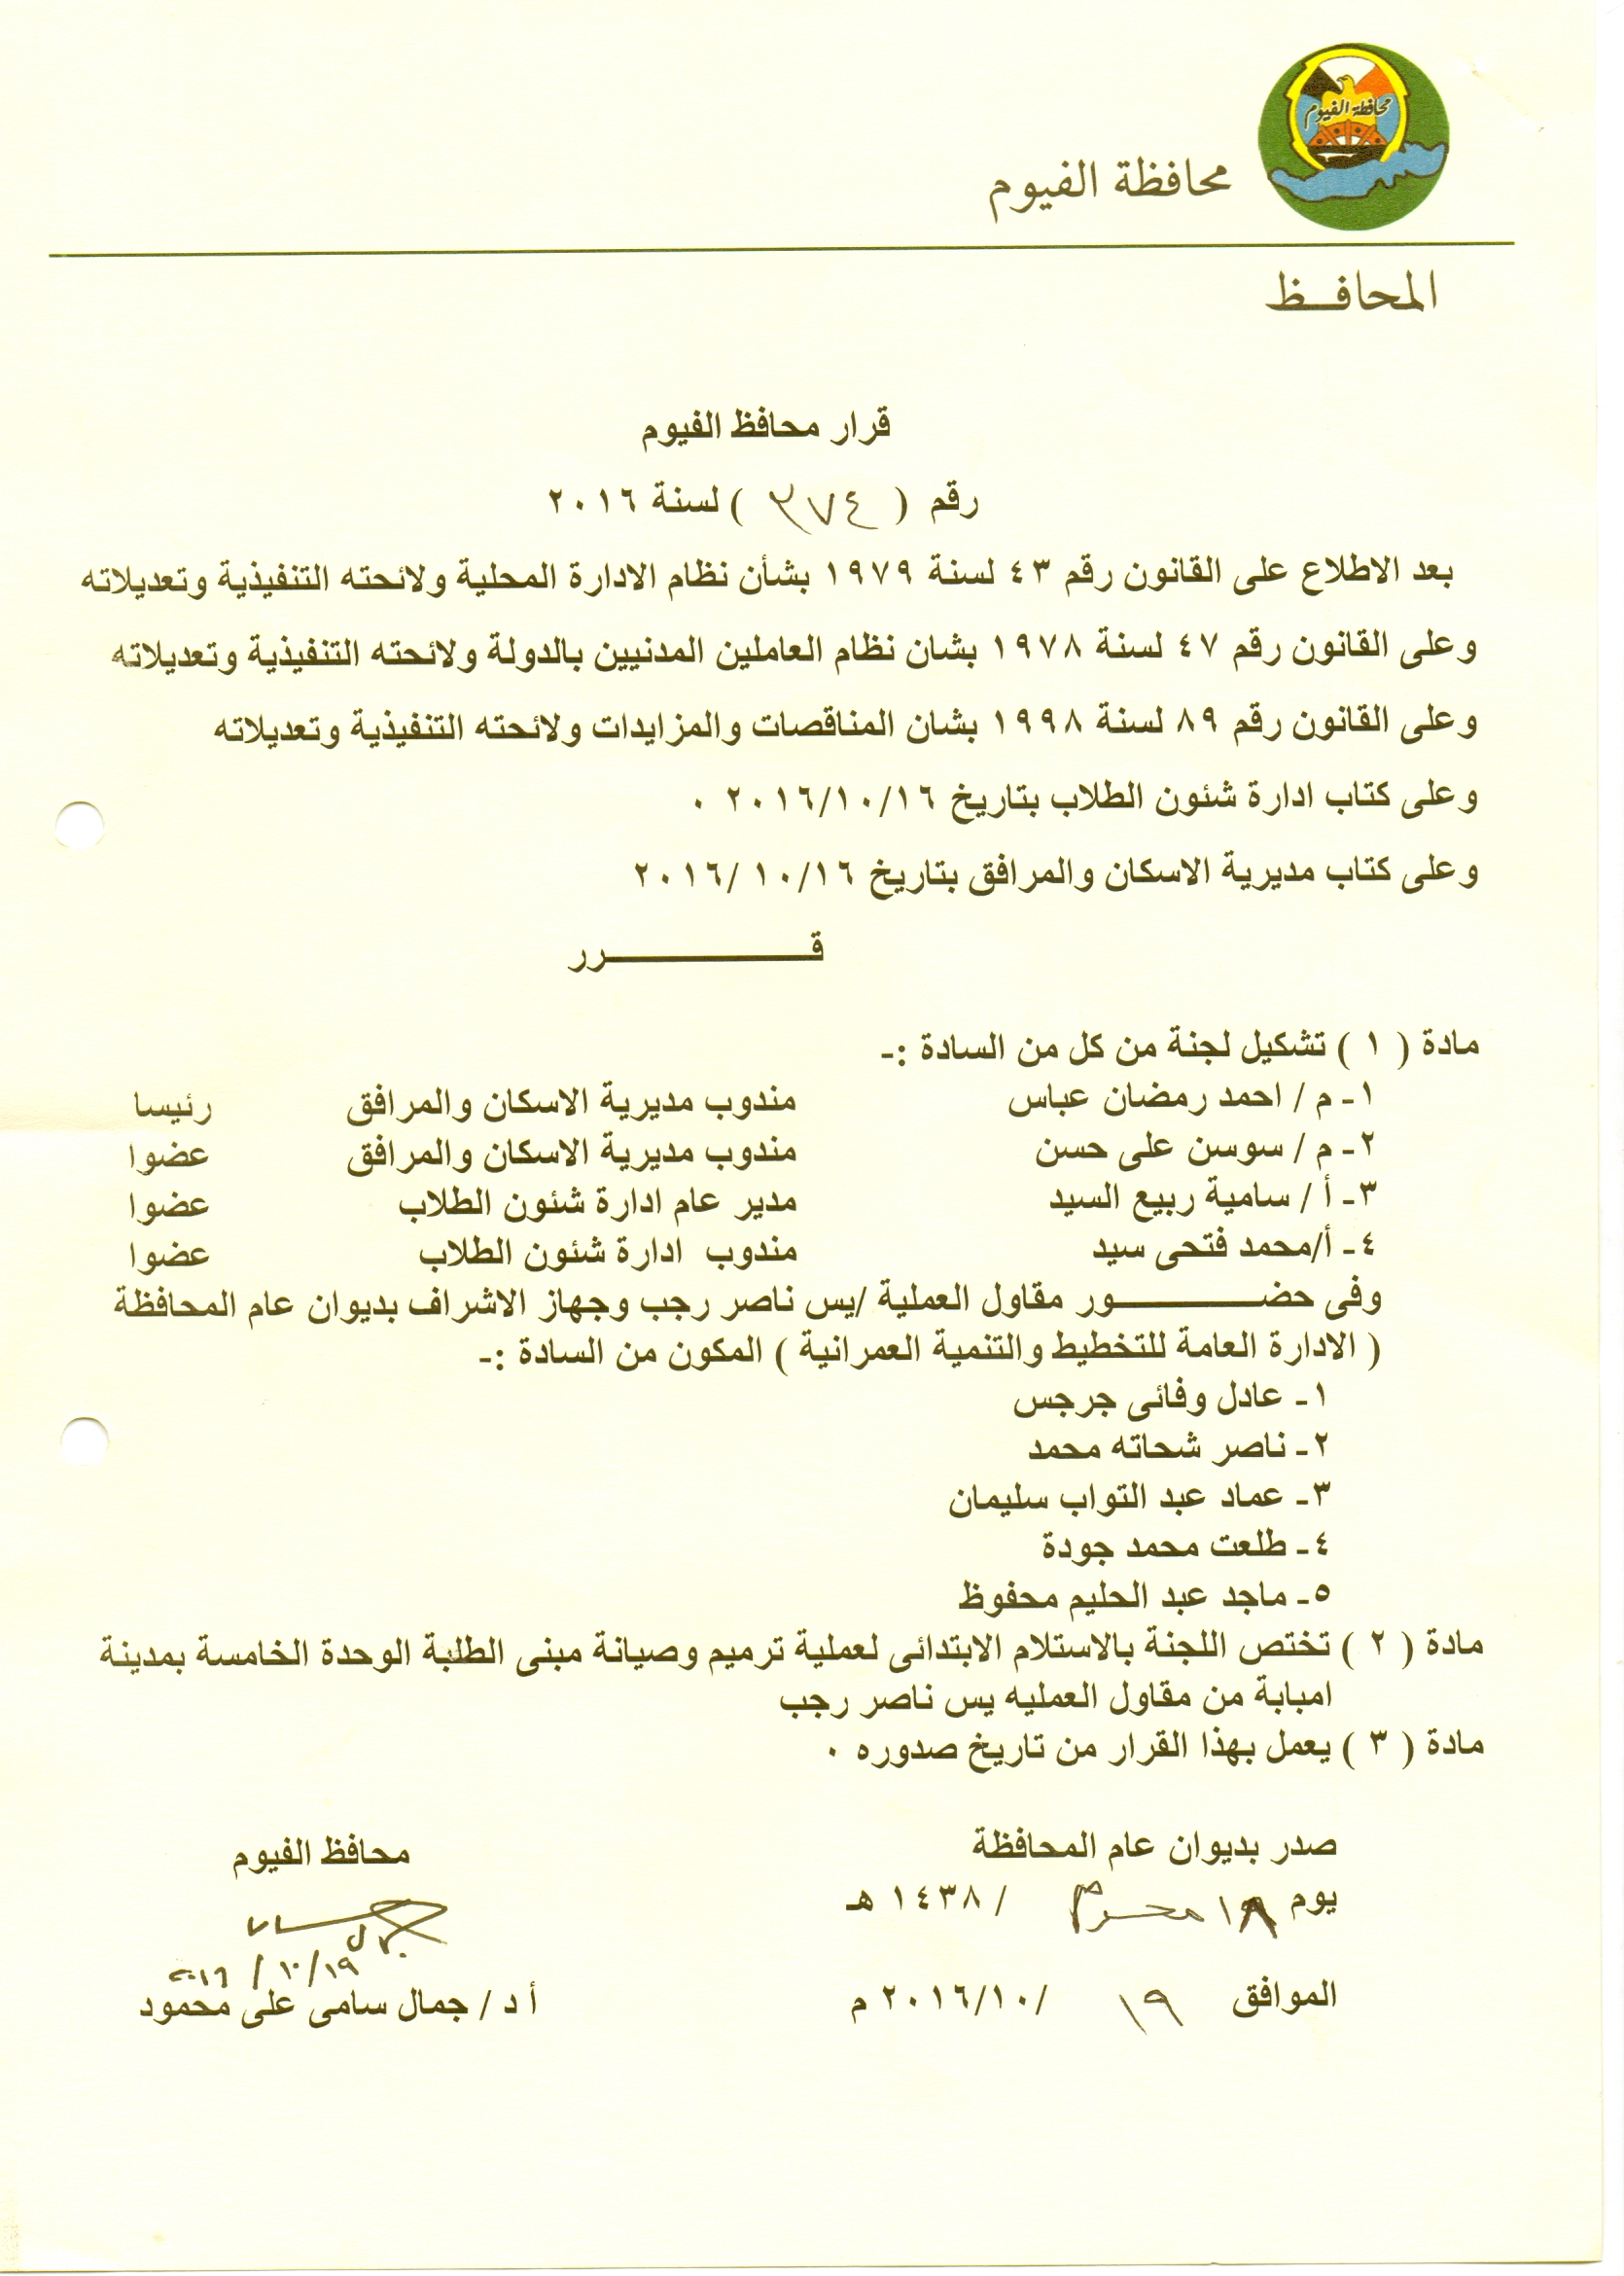 محافظة الفيوم
محافظة الفيوم
المحافـــظ
قرار محافظ الفيوم
رقم ( ٣٧٤ ) لسنة ٢٠١٦
بعد الاطلاع على القانون رقم ٤٣ لسنة ١٩٧٩ بشأن نظام الادارة المحلية ولائحته التنفيذية وتعديلاته
وعلى القانون رقم ٤٧ لسنة ١٩٧٨ بشان نظام العاملين المدنيين بالدولة ولائحته التنفيذية وتعديلاته
وعلى القانون رقم ٨٩ لسنة ١٩٩٨ بشان المناقصات والمزايدات ولائحته التنفيذية وتعديلاته
وعلى كتاب ادارة شئون الطلاب بتاريخ ٢٠١٦/١٠/١٦ ٠
وعلى كتاب مديرية الاسكان والمرافق بتاريخ ١٦/١٠/ ٢٠١٦
قــــــــــــــــرر
مادة ( ١ ) تشكيل لجنة من كل من السادة :-
١- م / احمد رمضان عباس مندوب مديرية الاسكان والمرافق رئيسا
٢- م / سوسن على حسن مندوب مديرية الاسكان والمرافق عضوا
٣- أ / سامية ربيع السيد مدير عام ادارة شئون الطلاب عضوا
٤- أ/محمد فتحى سيد مندوب ادارة شئون الطلاب عضوا
وفى حضـــــــــــور مقاول العملية /يس ناصر رجب وجهاز الاشراف بديوان عام المحافظة
( الادارة العامة للتخطيط والتنمية العمرانية ) المكون من السادة :-
١- عادل وفائى جرجس
٢- ناصر شحاته محمد
٣- عماد عبد التواب سليمان
٤- طلعت محمد جودة
٥- ماجد عبد الحليم محفوظ
مادة ( ٢ ) تختص اللجنة بالاستلام الابتدائى لعملية ترميم وصيانة مبنى الطلبة الوحدة الخامسة بمدينة
امبابة من مقاول العمليه يس ناصر رجب
مادة ( ٣ ) يعمل بهذا القرار من تاريخ صدوره ٠
صدر بديوان عام المحافظة
يوم ١٨ محرم / ١٤٣٨ هـ
الموافق ١٩ /٢٠١٦/١٠ م
محافظ الفيوم
١٩/١٠/٢٠١٦
أ د / جمال سامى على محمود